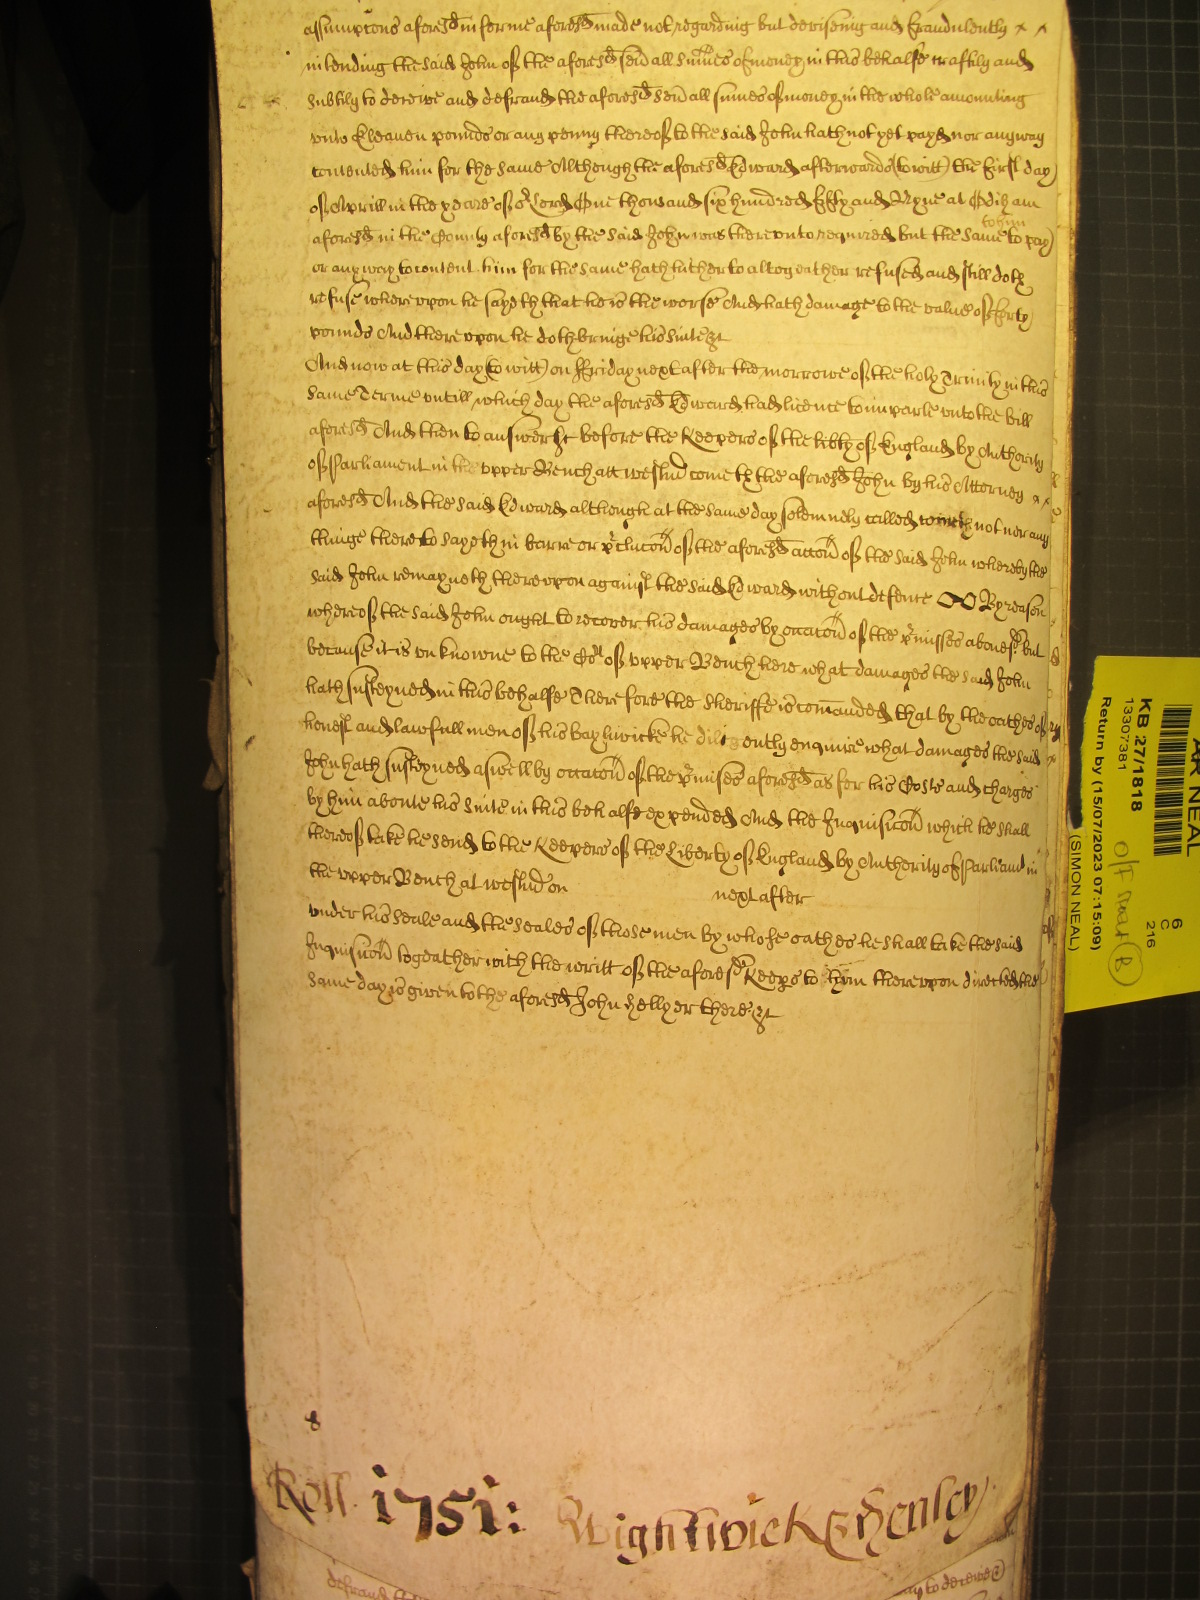 assumptons aforesd in forme aforesd made not regarding but deviseing and fraudulently x x
intending the said John of the aforesd seuall summes of money in this behalfe craftily and
subtily to deceive and defraud the aforesd seuall sumes of money in the whole amounting
vnto Eleauen pounds or any penny thereof to the said John hath not yet payd nor any way
contented him for the same Although the aforesd Edward afterwards (to witt) the first day
of Aprill in the yeare of or Lord One thousand six hundred fifty and Nyne at Odiham
aforesd in the County aforesd by the said John was therevnto required but the same to him to pay
or any way to content him for the same hath hitherto altogeather refused and still doth
refuse wherevpon he sayeth that he is the worse And hath damage to the value of forty
pounds And therevpon he doth bringe his suite &c
And now at this day (to witt) on ffriday next after the morrowe of the holy Trinity in this
same Terme vntill which day the aforesd Edward had licence to imparle vnto the bill
aforesd And then to answer &c before the Keepers of the libty of England by Authority
of Parliament in the vpper Bench att westmr come th the aforesd John by his Attorney x x
aforesd And the said Edward although at the same day solemnely called cometh not nor any
thinge thereto sayeth in barre or pclucon of the aforesd accon of the said John whereby the
said John remayneth therevpon against the said Edward without defence By reason
whereof the said John ought to recover his damages by occacon of the pmisses abouesd but
because it is vnknowne to the Cort of vpper Bench here what damages the said John
hath susteyned in this behalfe Therefore the Sheriffe is comanded that by the oathes of
honest and lawfull men of his baylwicke he diligently enquire what damages the said
John hath susteyned aswell by occacon of the pmises aforesd as for his Costs and charges
by him aboute his suite in this behalfe expended And the Inquisicon which he shall
thereof take he send to the Keepers of the Liberty of England by Authority of Parliamt in
the vpper Bench at westmr on next after
vnder his seale and the seales of those men by whose oathes he shall take the said
Inquisicon togeather with the writt of the aforesd Keeps to him therevpon directed the
same day is given to the aforesd John Hellyer there &c
8
Roll. 1751: Wightwick & Henley
defraud
to deceive
NEAL
KB 27/1818
13307381
Return by (15/07/2023 07:15:09)
(SIMON NEAL)
6
C
216